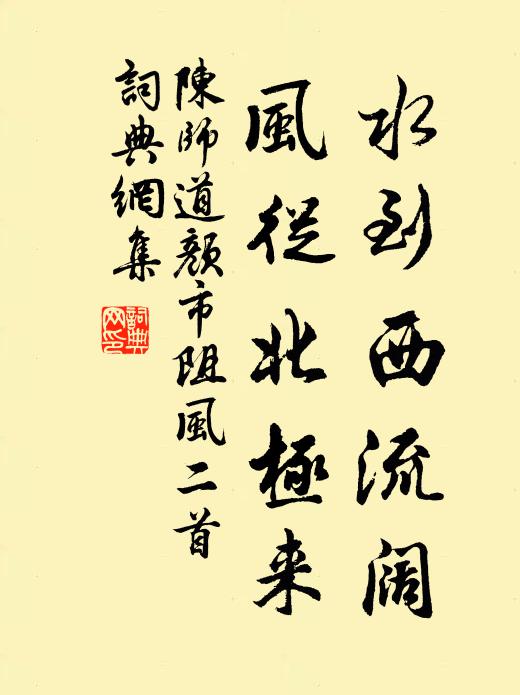 水到西流阔
風從北極来
陳師道顔市阻風二首
詞典網集
詞典网印